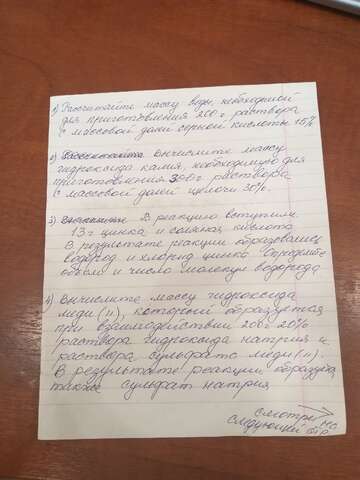 1) Рассчитайте массу воды, необходимой
для приготовления 200 г раствора
с массовой долей серной кислоты 15%
2) вычислите массу
гидроксида калия, необходимую для
приготовления 300 г раствора
с массовой долей щелочи 30%.
3) В реакцию вступили
13 г цинка и соляная кислота
В результате реакции образовались
водород и хлорид цинка. Определите
объем и число молекул водорода
4) Вычислите массу гидроксида
меди (II), который образуется
при взаимодействии 200 г 20%
раствора гидроксида натрия и
раствора сульфата меди (II).
В результате реакции образуется
также сульфат натрия
смотри на
следующей